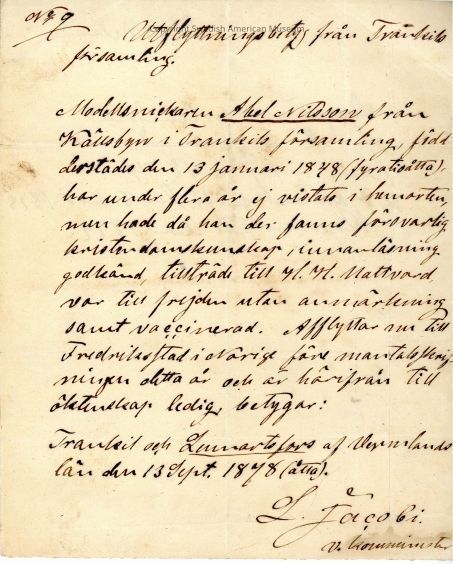 No 9
Copyright Swedish American Museum
Utflyttningsbetyg från Trankils
församling.
Modellsnickaren Abel Nilsson från
Källsbyn i Trankils församling, född
derstädes den 13 januari 1848 (fyratioåtta),
har under flera år ej vistats i hemorten,
men hade då han der fanns försvarlig
kristendomskunskap, innanläsning
godkänd, tillträde till H. H. Nattvard
var till frejden utan anmärkning
samt vaccinerad. Afflyttar nu till
Fredrikstad i Norige före mantalsskrif-
ningen detta år och är härifrån till
äktenskap ledig, betygar:
Trankil och Lennartsfors af Vermlands
län den 13 Sept. 1878 (åtta).
L. Jacobi.
v. Komminister